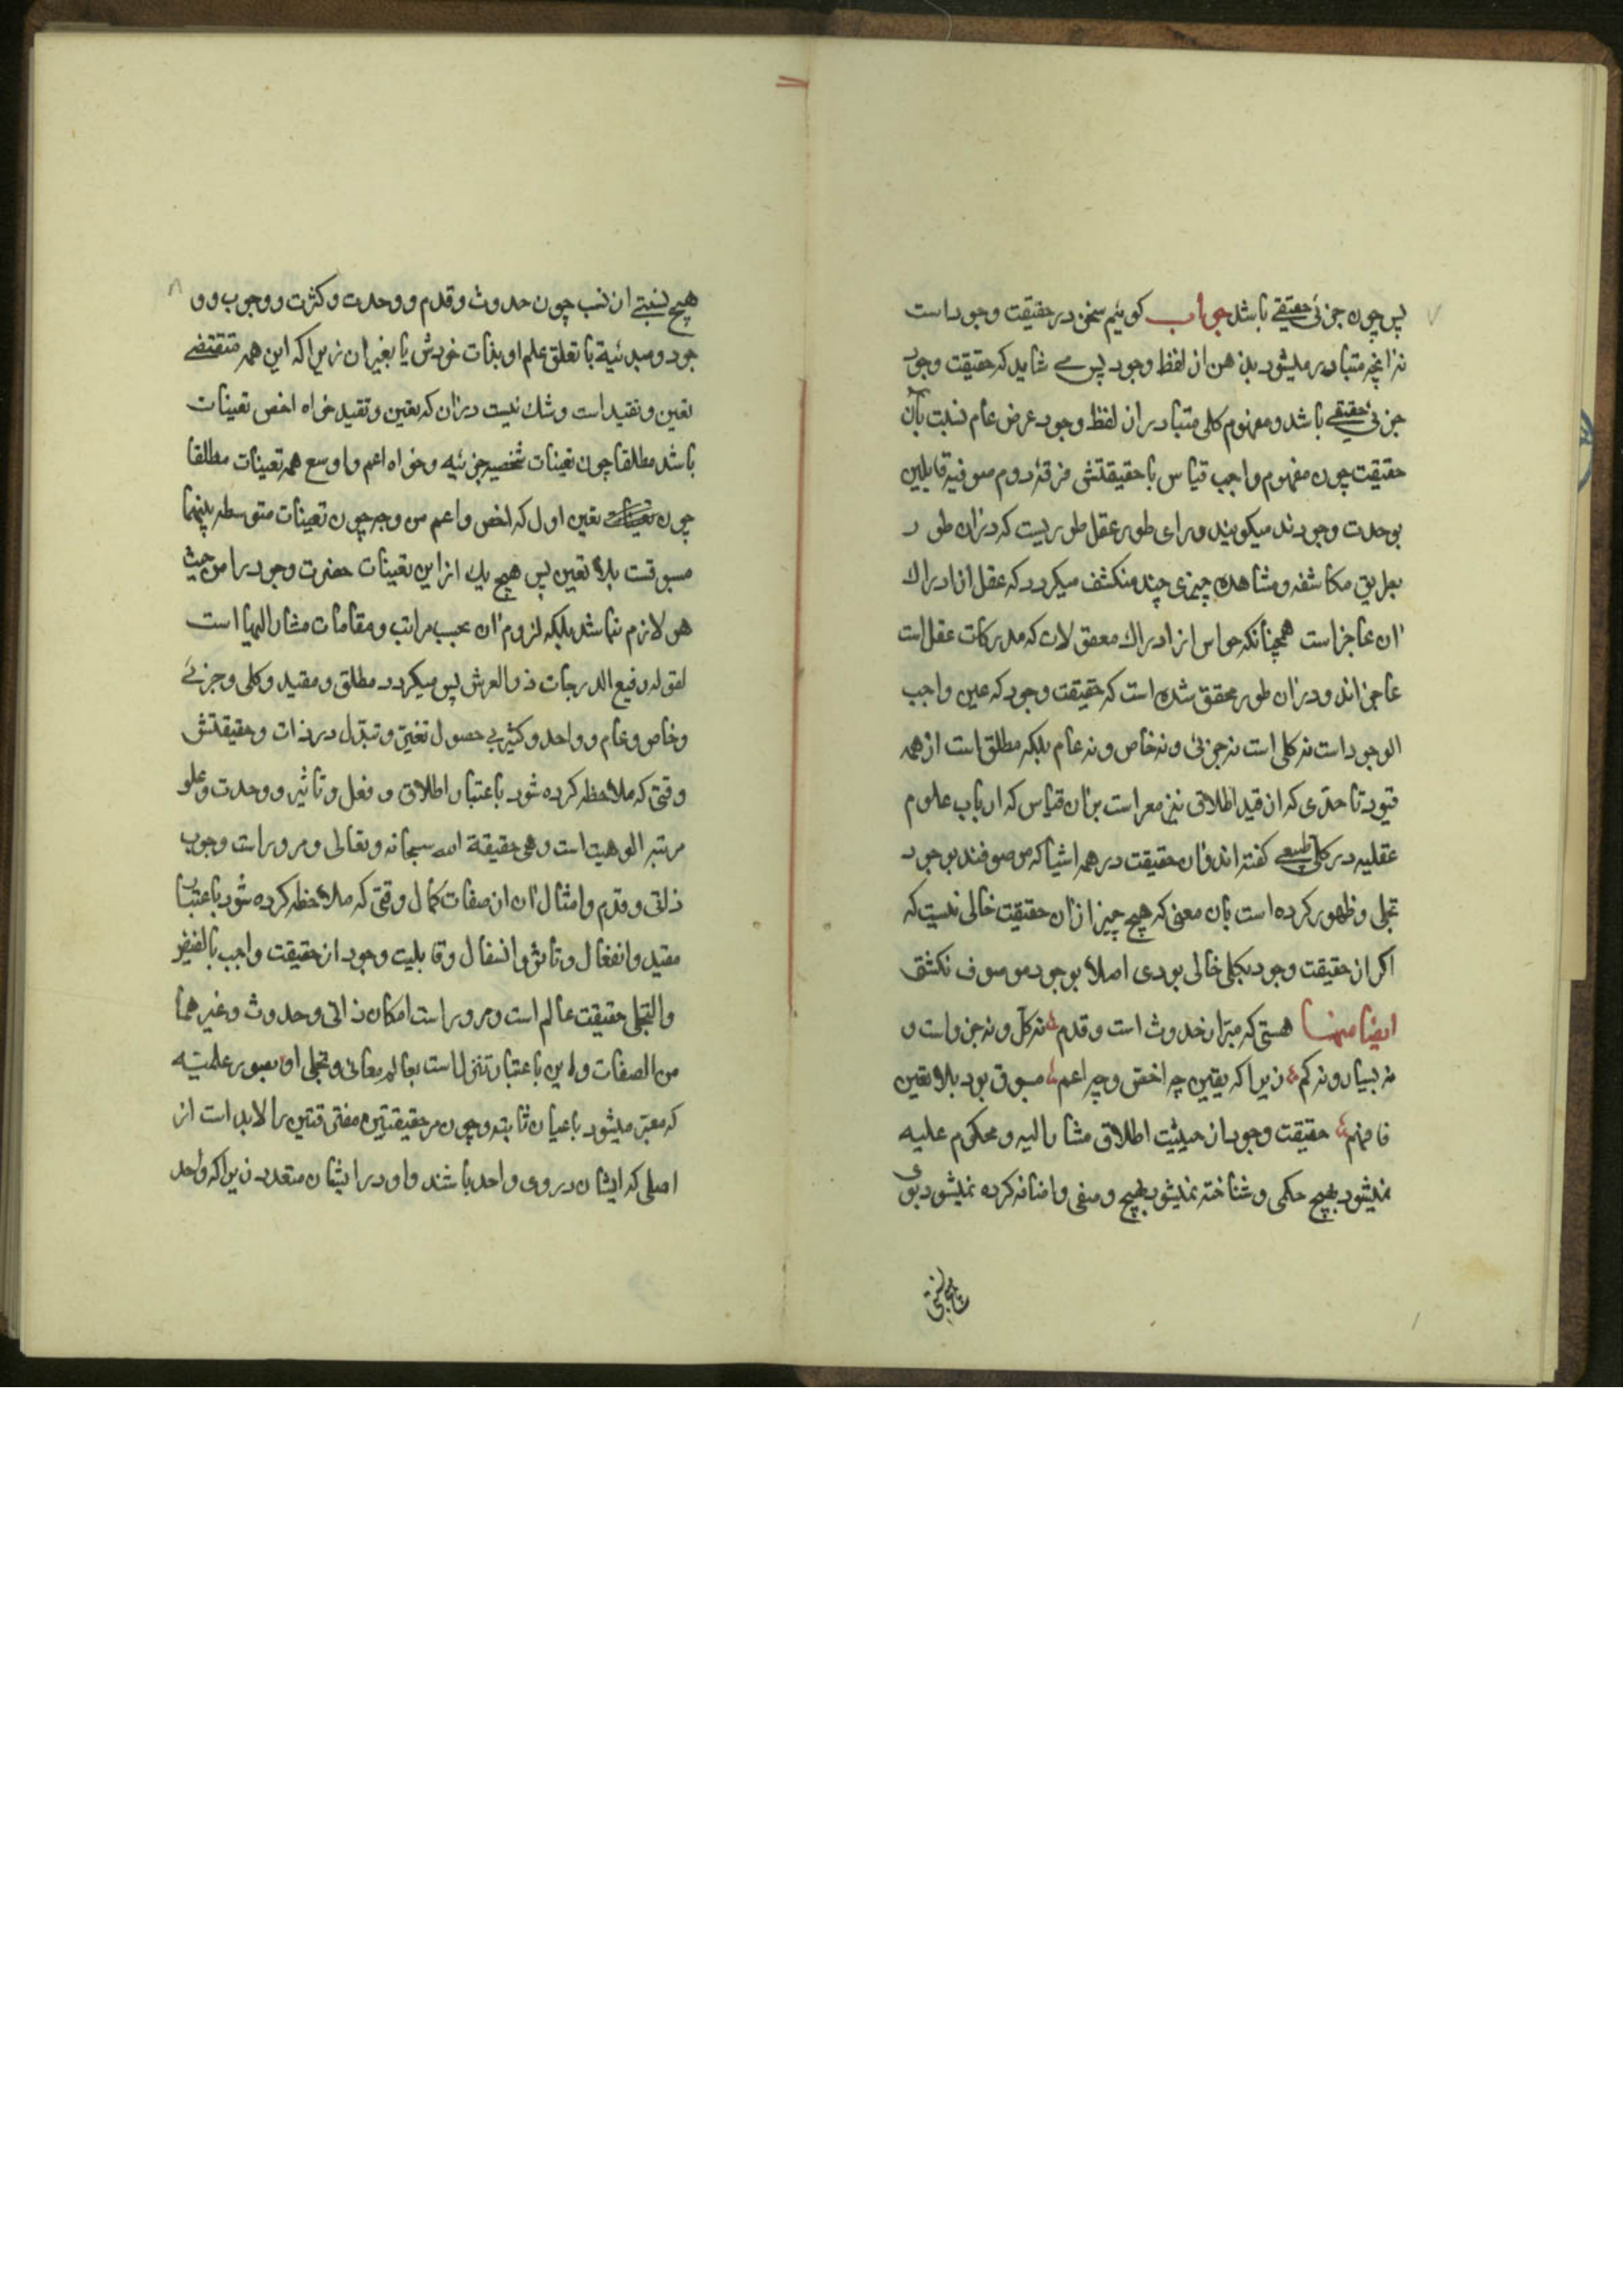 ۷
پس چون جزئی حقیقے باشد جواب کوئیم سخن در حقیقت وجود است
نه انچه متبادر میشود بذهن از لفظ وجود پس مے شاید که حقیقت وجود
جزئی حقیقے باشد و مفهوم کلی متبادر از لفظ وجود عرض عام نسبت بآن
حقیقت چون مفهوم واجب قیاس با حقیقتش فرقهٔ دوم صوفیه قایلین
بوحدت وجودند میکویند ورای طور عقل طوریست که دران طور
بطریق مکاشفه و مشاهده چیزی چند منکشف میکردد که عقل از ادراك
ان عاجز است همچنانکه حواس از ادراك معقولات که مدرکات عقل است
عاجزاند و دران طور محقق شده است که حقیقت وجود که عین واجب
الوجود است نه کلی است نه جزئی و نه خاص و نه عام بلکه مطلق است از همه
قیود تا حدّی که از قید اطلاق نیز معراست بران قیاس که ارباب علوم
عقلیه در کلّی طبیعے کفته اند وان حقیقت در همه اشیا که موصوفند بوجود
تجلی و ظهور کرده است بان معنی که هیچ چیز ازان حقیقت خالی نیست که
اکر از حقیقت وجود بکلی خالی بودی اصلا بوجود موصوف نکشتی
ایضا منها هستی که مبرّا ز حدوث است و قدم نه کلّ و نه جزو است و
نه بسیار و نه کم زیرا که تعین چه اخص و چه اعم مسبوق بود بلا تعین
فافهم حقیقت وجود از حیثیت اطلاق مشار الیه و محکوم علیه
نمیشود بهیچ حکمی و شناخته نمیشود بهیچ وصفی و اضافه کرده نمیشود بوی
۸
هیچ نسبتے از نسب چون حدوث و قدم و وحدت و کثرت و وجوب و و
جود و مبدئیة یا تعلق علم او بذات خودش یا بغیر ان زیرا که این همه مقتضے
تعین و تقید است و شك نیست دران که تعین و تقید خواه اخص تعینات
باشد مطلقا چون تعینات شخصیه جزئیه و خواه اعم و اوسع همه تعینات مطلقا
چون تعین اول که اخص و اعم من وجه چون تعینات متوسطه بینهما
مسبوقست بلا تعین پس هیچ یك از این تعینات حضرت وجود را من حیث
هو لازم نباشد بلکه لزوم ان بحسب مراتب و مقامات مشار الیها است
لقوله رفیع الدرجات ذو العرش پس میکردد مطلق و مقید و کلی و جزئے
و خاص و عام و واحد و کثیر بے حصول تغیّر و تبدّل در ذات و حقیقتش
وقتی که ملاحظه کرده شود باعتبار اطلاق و فعل و تأثیر و وحدت و علو
مرتبه الوهیت است و هی حقیقة الله سبحانه و تعالی و مرورا است وجوب
ذاتی و قدم و امثال ان از صفات کمال وقتی که ملاحظه کرده شود باعتبار
مقید و انفعال و تأثر و انسفال و قابلیت وجود از حقیقت واجب بالفیض
والتجلی حقیقت عالم است و مرورا است امکان ذاتی و حدوث و غیرهما
من الصفات و این باعتبار تنزل است بعالم معانی و تجلی او بصور علمیّه
که معبّر میشود باعیان ثابته و چون مر حقیقتین مفترقتین را لابد است از
اصلی که ایشان در وی واحد باشند و او در ایشان متعدد زیرا که واحد